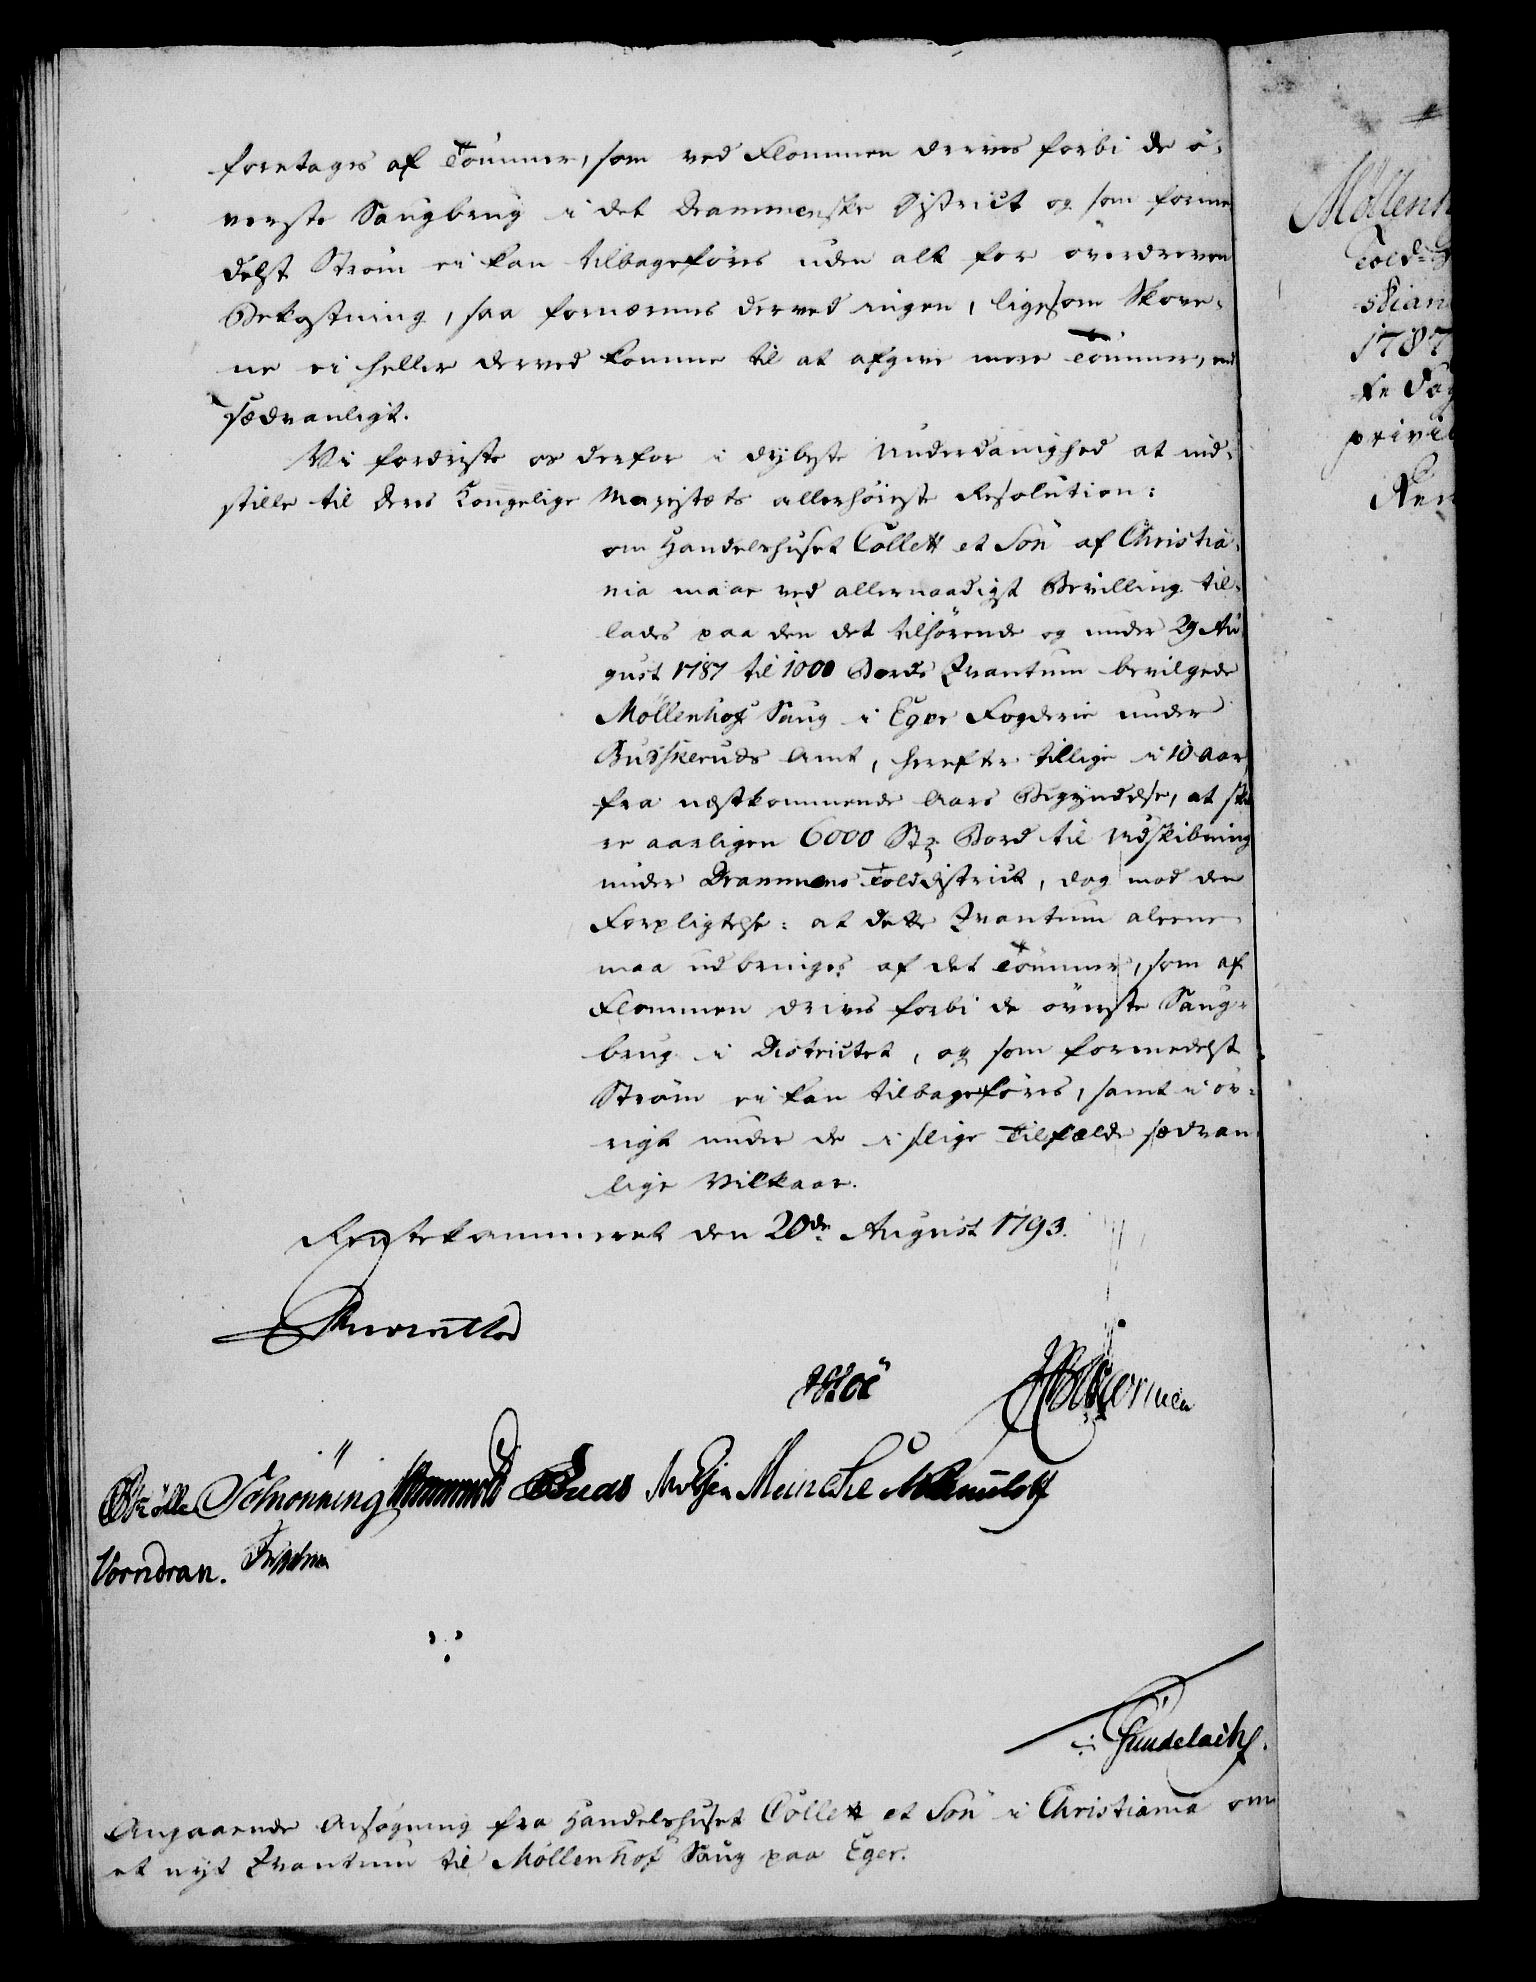 foretages af Tømmer, som ved Flommen drives forbi de ö-
verste Saugbrug i det Drammenske District og som forme
delst Ström ei kan tilbageføres uden alt for överdreven
Bekostning, saa fornærmes derved ingen, ligesom Skove-
ne ei heller derved komme til at afgive mere Tømmer, end
sædvanligt.
Vi fordriste os derfor i dybeste Underdanighed at ind-
stille til Deres Kongelige Majestæts allerhöieste Resolution:
om Handelshuset Collett et Sön af Christia-
nia maae ved allernaadigst Bevilling til-
lades paa den det tilhörende og under 29 Au
gust 1787 til 1000 Bords Qvantum bevilgede
Möllenhof Saug i Eger Fogderie under
Budskeruds Amt, herefter tillige i 10 Aar,
fra næstkommende Aars Begyndelse, at skiæ
re aarligen 6000 Stz Bord til Udskibning
under Drammens Tolddistrict, dog mod den
Forpligtelse: at dette Qvantum aleene
maa udbringes af det Tømmer, som af
Flommen drives forbi de överste Saug-
brug i Districtet, og som formedelst
Ström ei kan tilbageføres, samt i öv-
rigt under de i slige Tilfælde sædvan
lige Vilkaar.
Rentekammeret den 20de August 1793.
Reventlow
Wöe
Schönning Meincke
Vorndran.
Gundelach.
Angaaende Ansögning fra Handelshuset Collett et Sön i Christiania om
et nyt Qvantum til Möllenhof Saug paa Eger.
Möllenh
Told-
stian
1787
privil
Ren